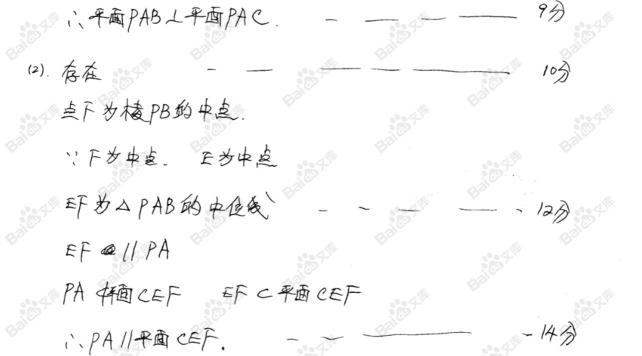 ∴平面PAB⊥平面PAC. 9分
(2). 存在 10分
点F为棱PB的中点.
∵F为中点. E为中点
EF为△PAB的中位线 12分
EF // PA
PA⊄平面CEF EF⊂平面CEF
∴PA//平面CEF. 14分